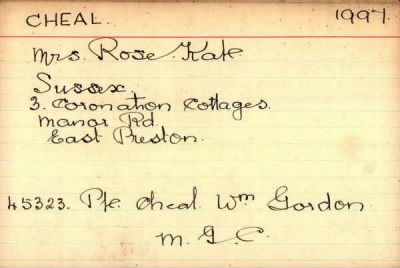 CHEAL. 1997.
Mrs. Rose Kate
Sussex.
3. Coronation Cottages.
Manor Rd.
East Preston.
45323. Pte. Cheal. Wm Gordon
M. G. C.